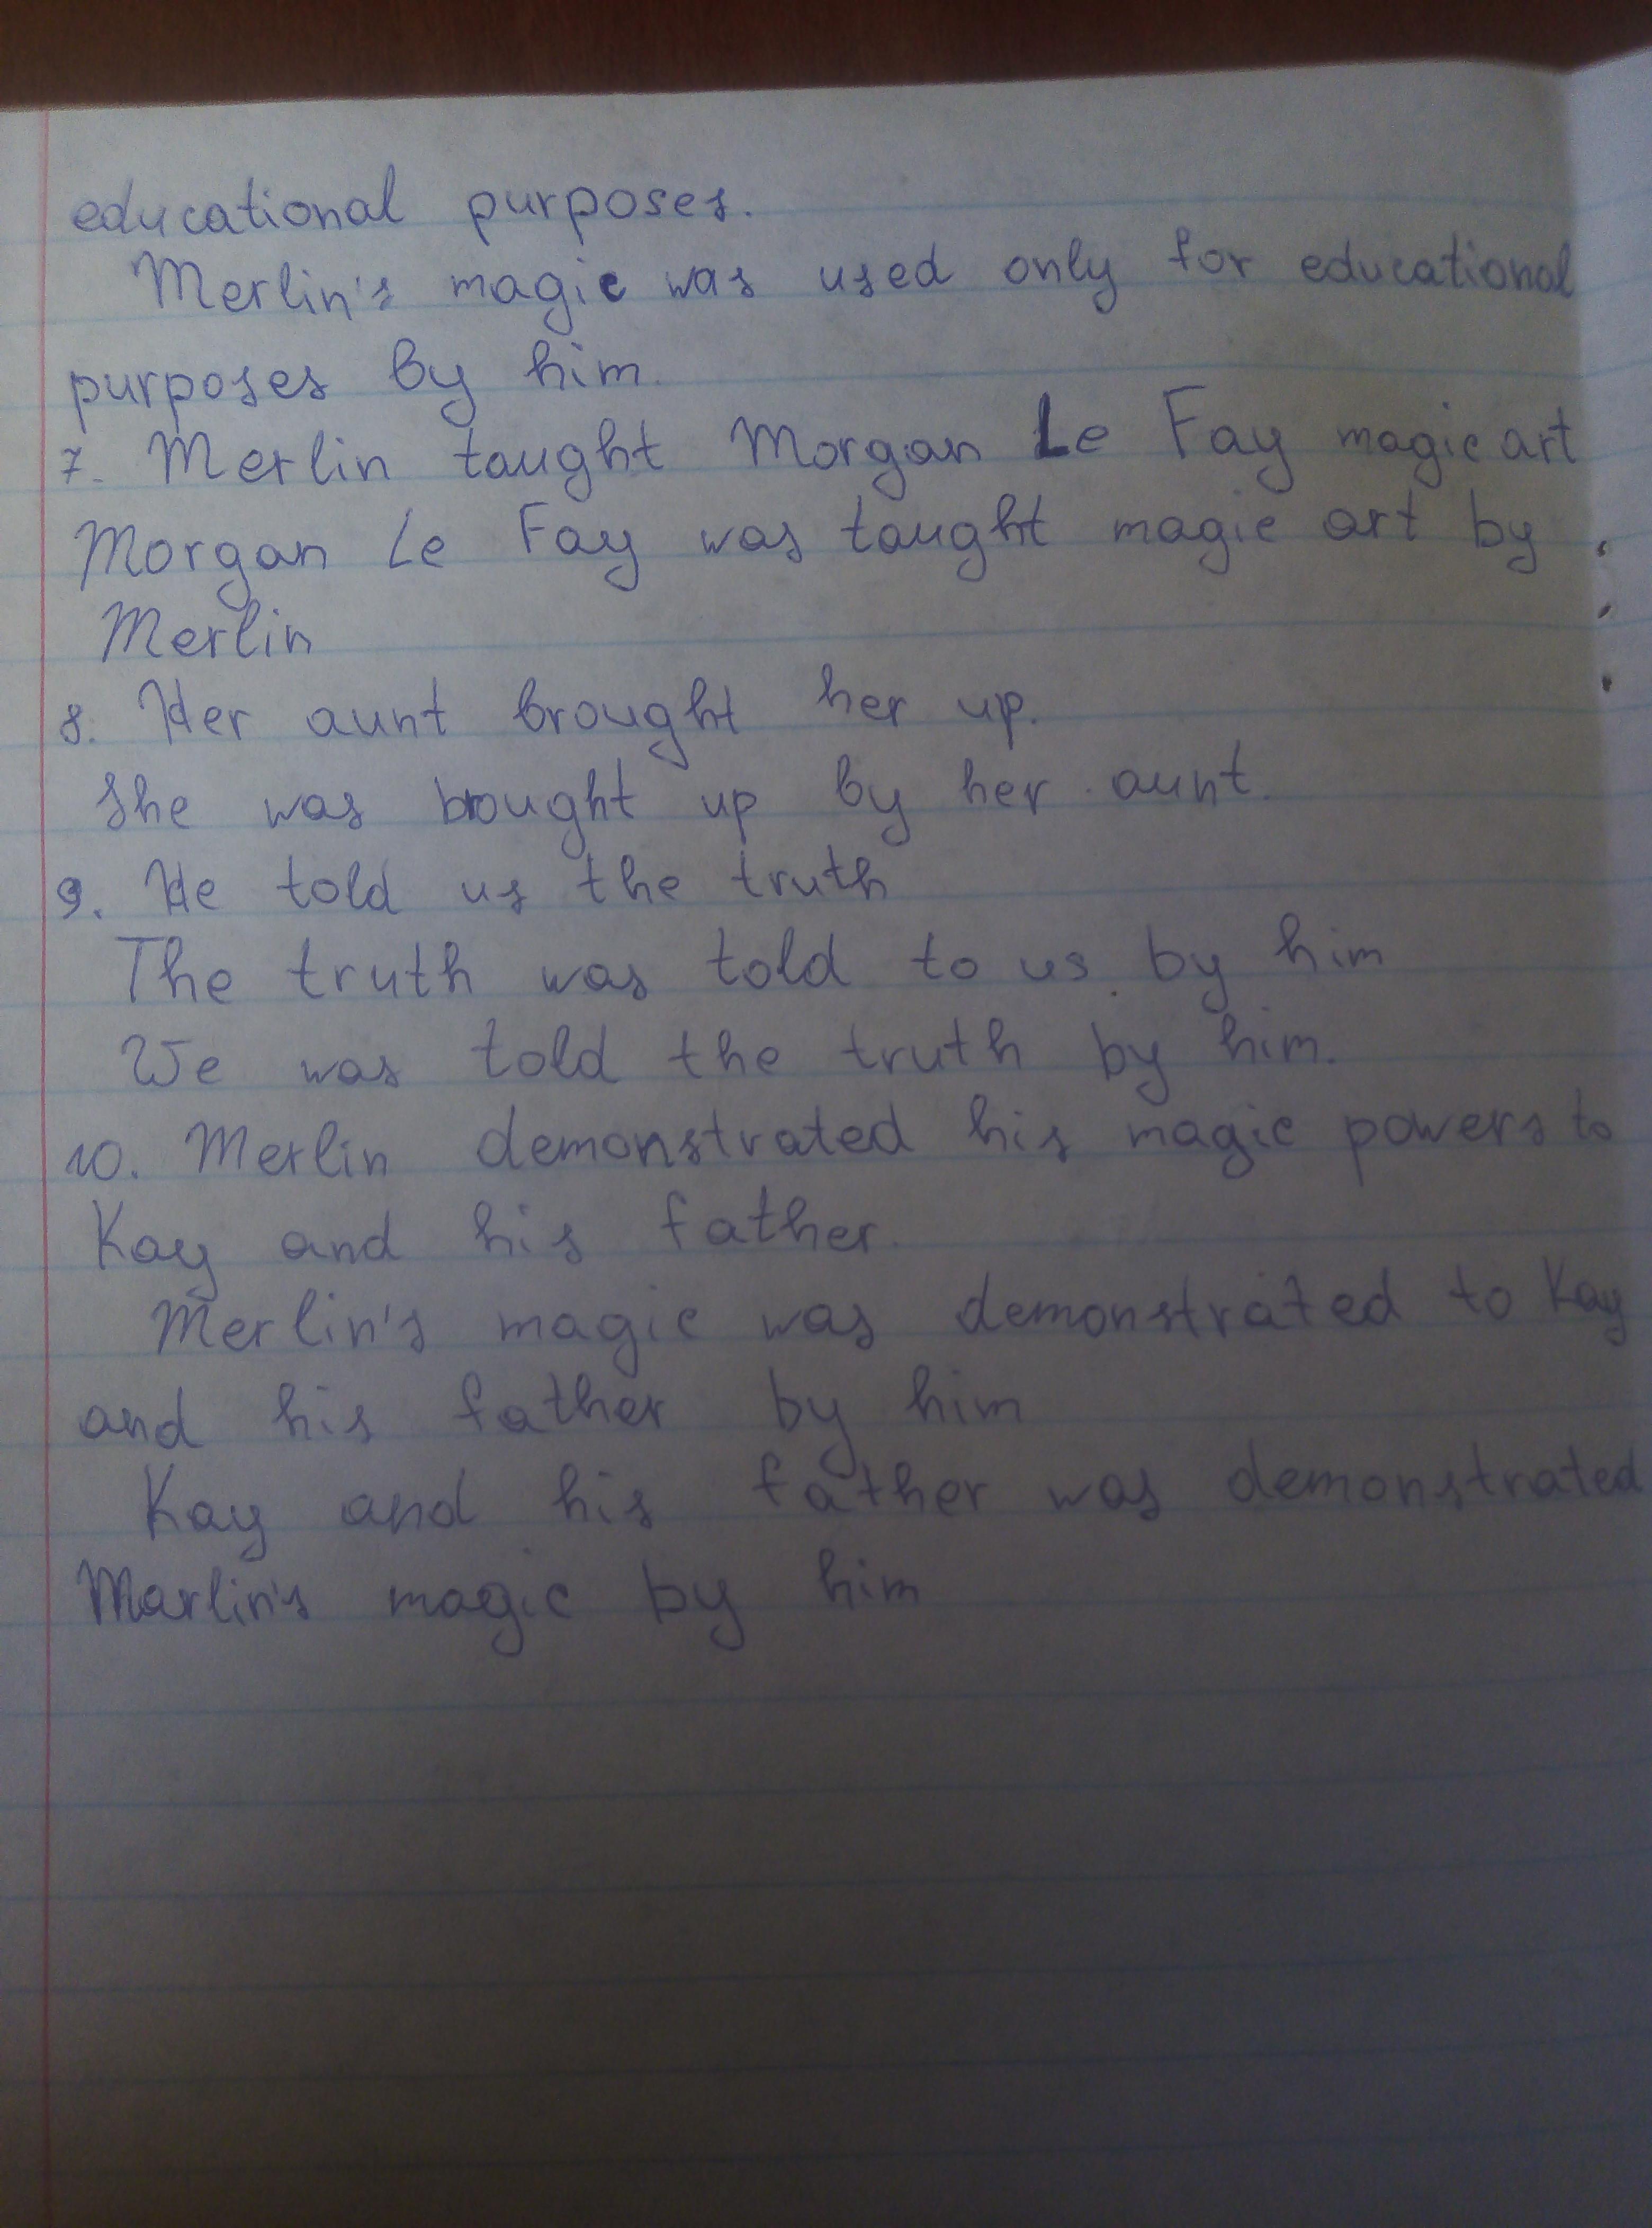 educational purposes.
Merlin's magic was used only for educational
purposes by him.
7. Merlin taught Morgan Le Fay magic art
Morgan Le Fay was taught magic art by
Merlin
8. Her aunt brought her up.
She was brought up by her aunt.
9. He told us the truth
The truth was told to us by him
We was told the truth by him.
10. Merlin demonstrated his magic powers to
Kay and his father.
Merlin's magic was demonstrated to Kay
and his father by him
Kay and his father was demonstrated
Marlin's magic by him